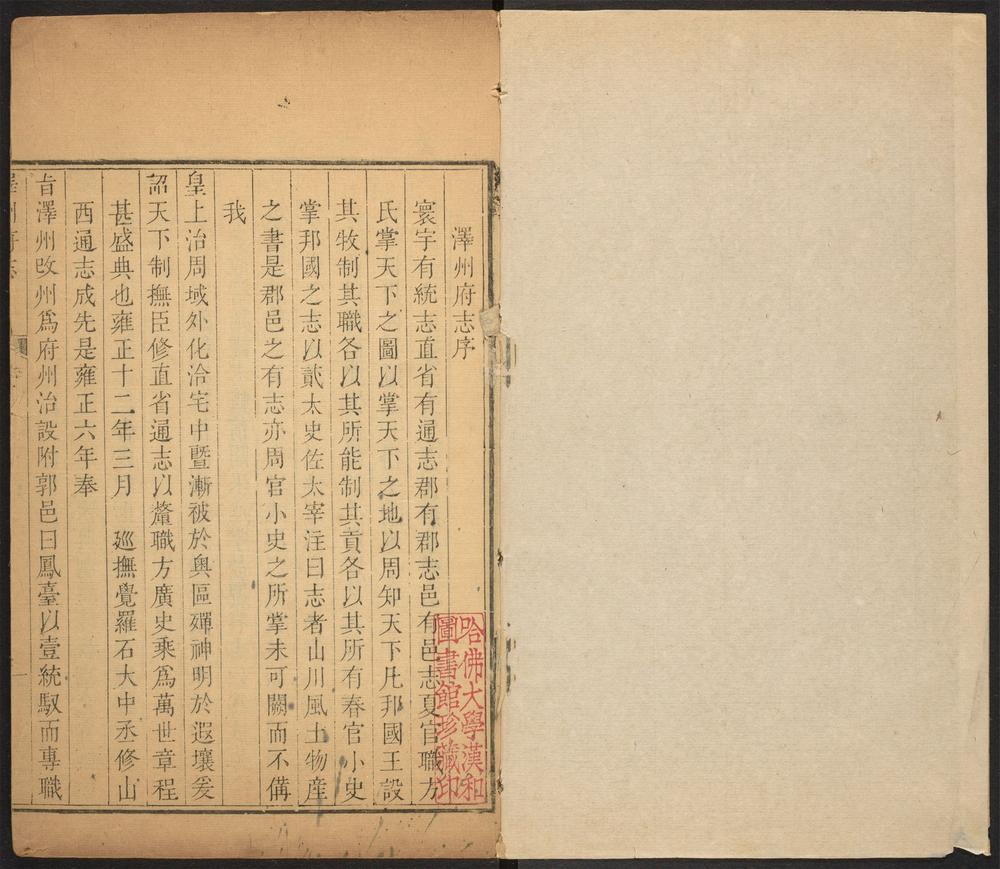 澤州府志序
寰宇有統志直省有通志郡有郡志邑有邑志夏官職方
氏掌天下之圖以掌天下之地以周知天下凡邦國王設
其牧制其職各以其所能制其貢各以其所有春官小史
掌邦國之志以貳太史佐太宰注曰志者山川風土物産
之書是郡邑之有志亦周官小史之所掌未可闕而不備
我
皇上治周域外化洽宅中暨漸被於奧區殫神明於遐壤爰
詔天下制撫臣修直省通志以釐職方廣史乘爲萬世章程
甚盛典也雍正十二年三月 廵撫覺羅石大中丞修山
西通志成先是雍正六年奉
旨澤州改州爲府州治設附郭邑曰鳳臺以壹統馭而專職
哈佛大學漢和
圖書館珍藏印